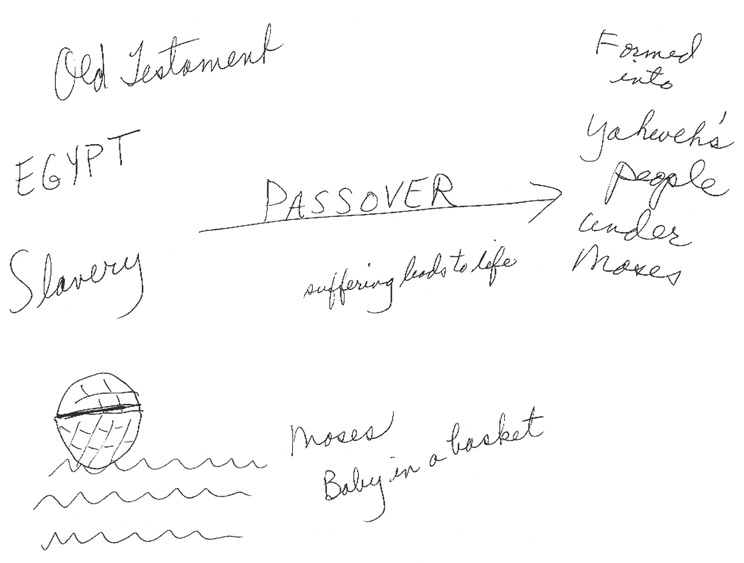 Old Testament
EGYPT
Slavery
PASSOVER
suffering leads to life
Formed
into
Yahweh's
people
under
Moses
Moses
Baby in a basket